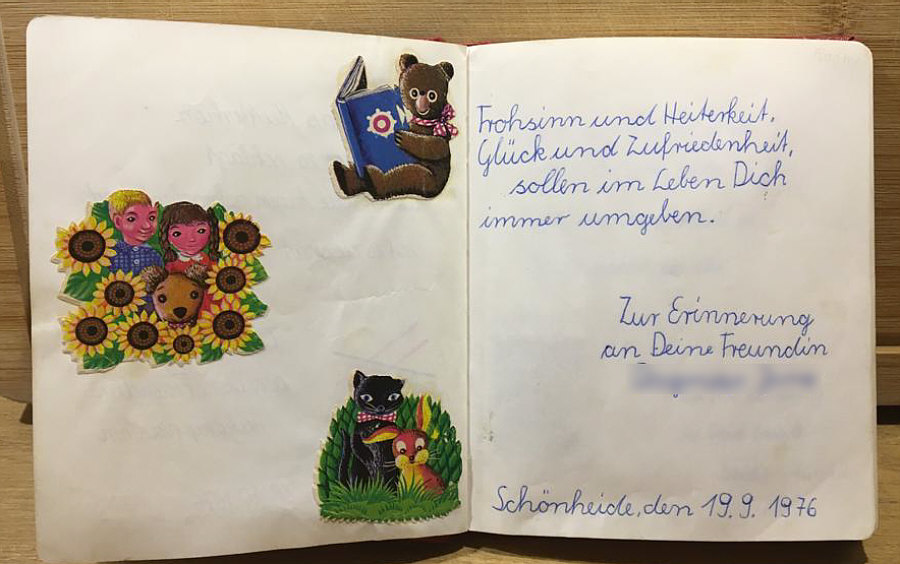 Frohsinn und Heiterkeit,
Glück und Zufriedenheit,
sollen im Leben Dich
immer umgeben.
Zur Erinnerung
an Deine Freundin
Schönheide, den 19. 9. 1976